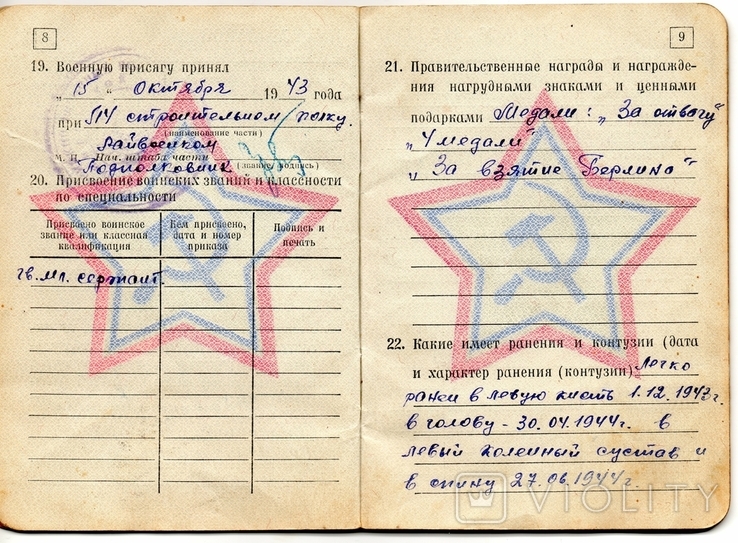 8
19. Военную присягу принял
„15" октября 1943 года
при строительном полку.
(наименование части)
Райвоенком
М. П. Нач. штаба части
Подполковник (звание, подпись)
20. Присвоение воинских званий и классности
по специальности
Присвоено воинское звание или классная квалификация
Кем присвоено, дата и номер приказа
Подпись и печать
гв. мл. сержант.
9
21. Правительственные награды и награжде-
ния нагрудными знаками и ценными
подарками Медали: „За отвагу"
„За взятие Берлина"
22. Какие имеет ранения и контузии (дата
и характер ранения (контузии) Легко
ранен в левую кисть 1.12.1943г.
в голову - 30.04.1944г. в
левый коленный сустав и
в спину 27.06.1944г.
VIOLITY